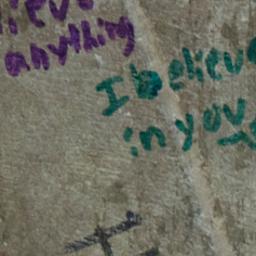 anything
I believe
in you